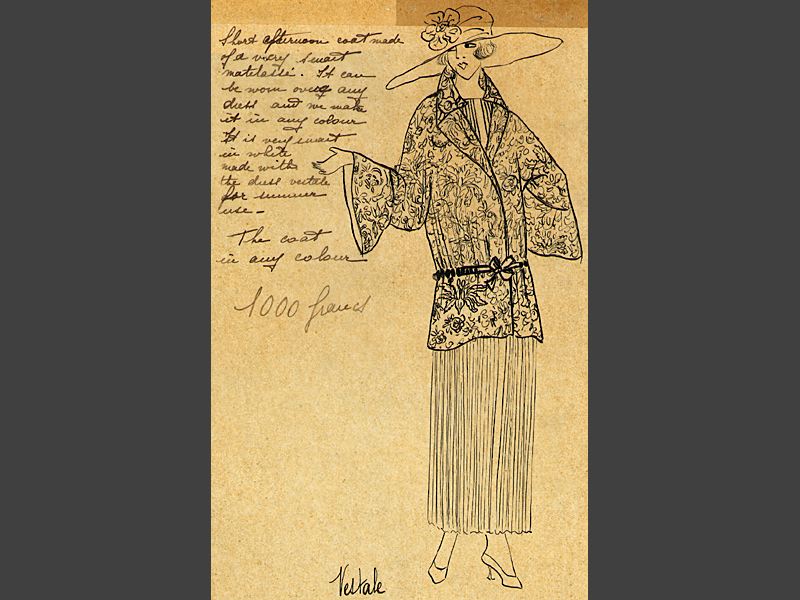 Short afternoon coat made
of a very smart
matelassé. It can
be worn over any
dress and we make
it in any colour
It is very smart
in white
made with
the dress vestale
for summer
use -
The coat
in any colour
1000 francs
Vestale